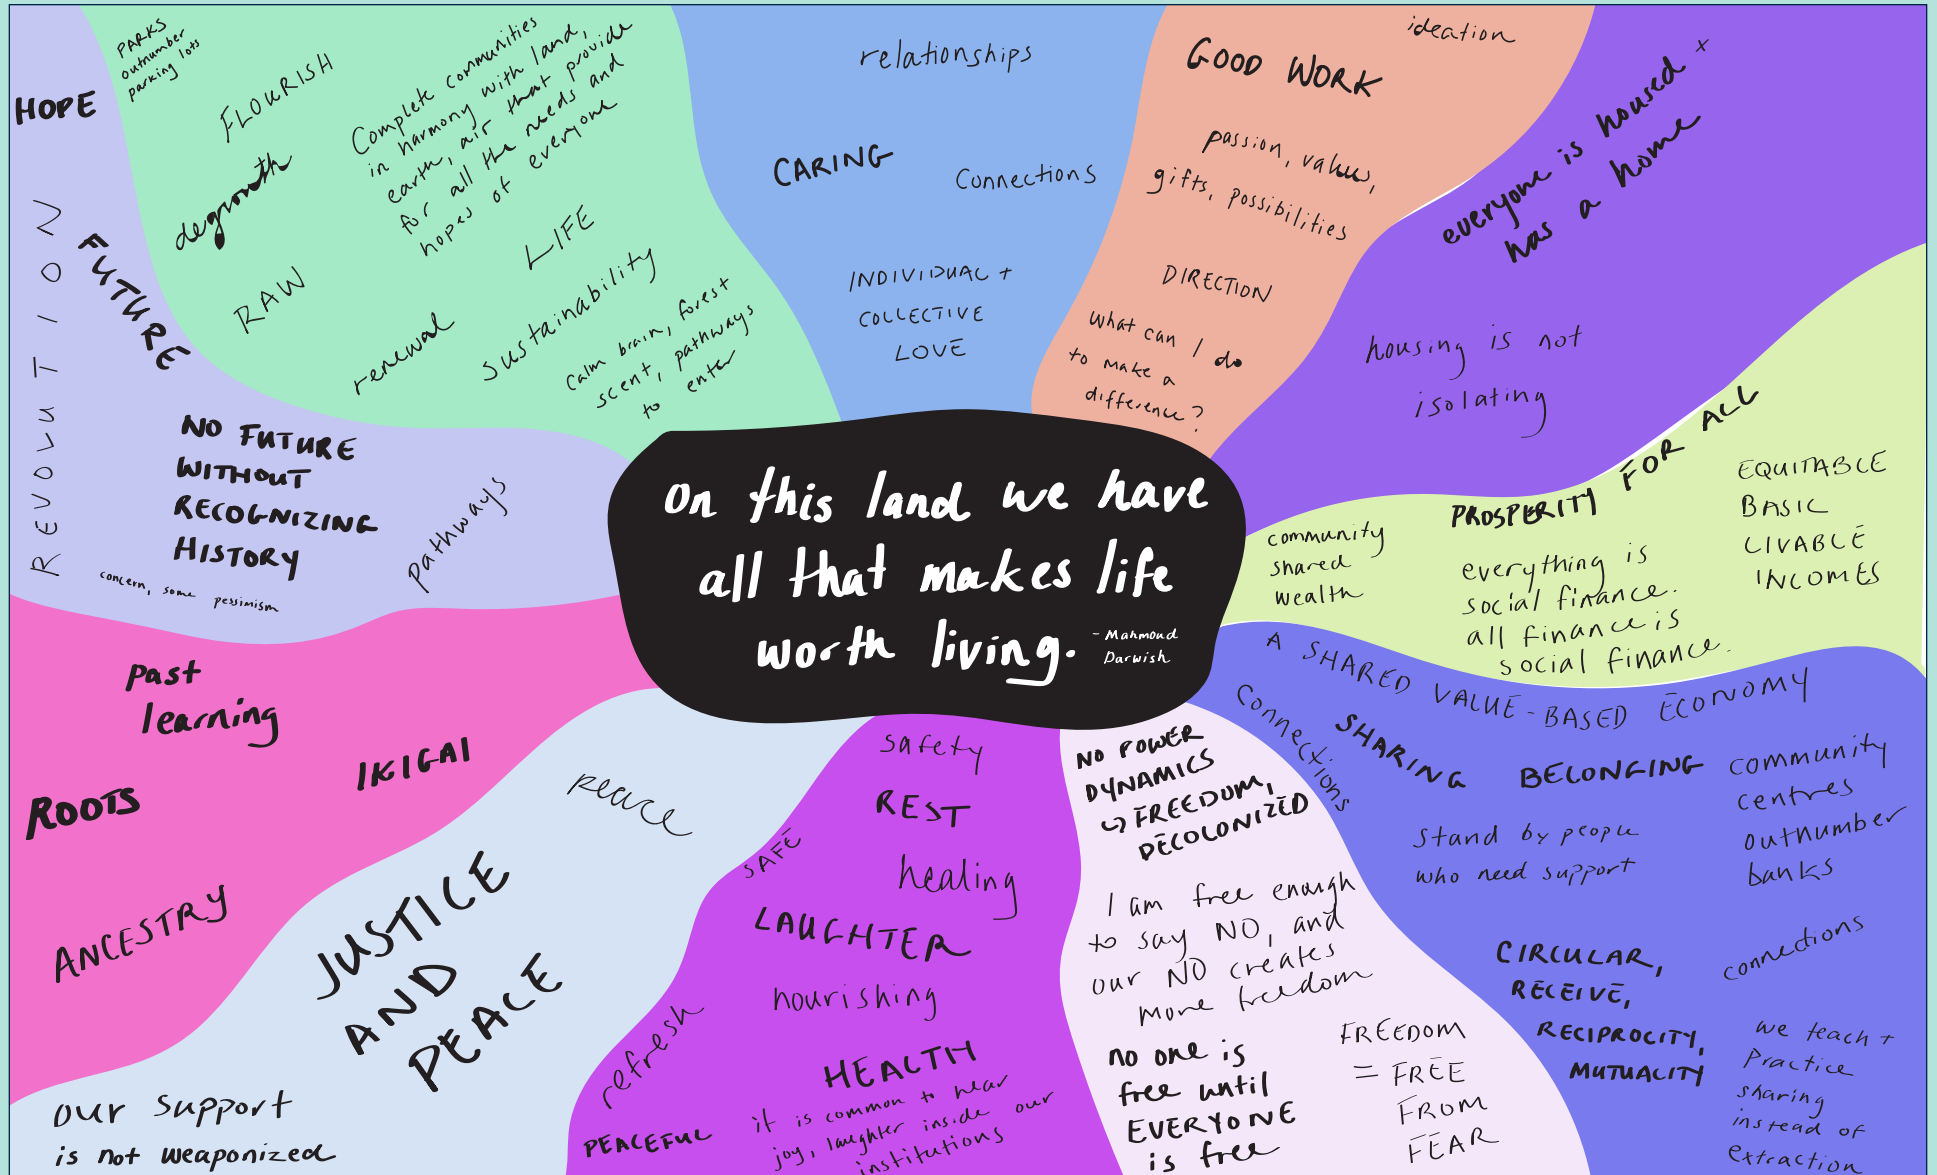 HOPE
REVOLUTION
FUTURE
NO FUTURE
WITHOUT
RECOGNIZING
HISTORY
concern, some pessimism
pathways
PARKS
outnumber
parking lots
FLOURISH
degrowth
RAW
Complete communities
in harmony with land,
earth, air that provide
for all the needs and
hopes of everyone
LIFE
renewal
Sustainability
Calm brain, forest
scent, pathways
to enter
relationships
CARING
Connections
INDIVIDUAL +
COLLECTIVE
LOVE
ideation
GOOD WORK
passion, values,
gifts, possibilities
DIRECTION
What can I do
to make a
difference?
everyone is housed +
has a home
housing is not
isolating
PROSPERITY FOR ALL
community
shared
wealth
everything is
social finance.
all finance is
social finance.
EQUITABLE
BASIC
LIVABLE
INCOMES
On this land we have
all that makes life
worth living.
- Mahmoud
Darwish
Past
learning
IKIGAI
ROOTS
ANCESTRY
peace
JUSTICE
AND
PEACE
our support
is not weaponized
safety
REST
SAFE
healing
LAUGHTER
nourishing
refresh
HEALTH
PEACEFUL
it is common to hear
joy, laughter inside our
institutions
NO POWER
DYNAMICS
↪ FREEDOM,
DECOLONIZED
I am free enough
to say NO, and
our NO creates
more freedom
no one is
free until
EVERYONE
is free
FREEDOM
= FREE
FROM
FEAR
A SHARED VALUE-BASED ECONOMY
Connections
SHARING
BELONGING
community
centres
outnumber
banks
Stand by people
who need support
CIRCULAR,
RECEIVE,
RECIPROCITY,
MUTUALITY
connections
we teach +
Practice
sharing
instead of
extraction